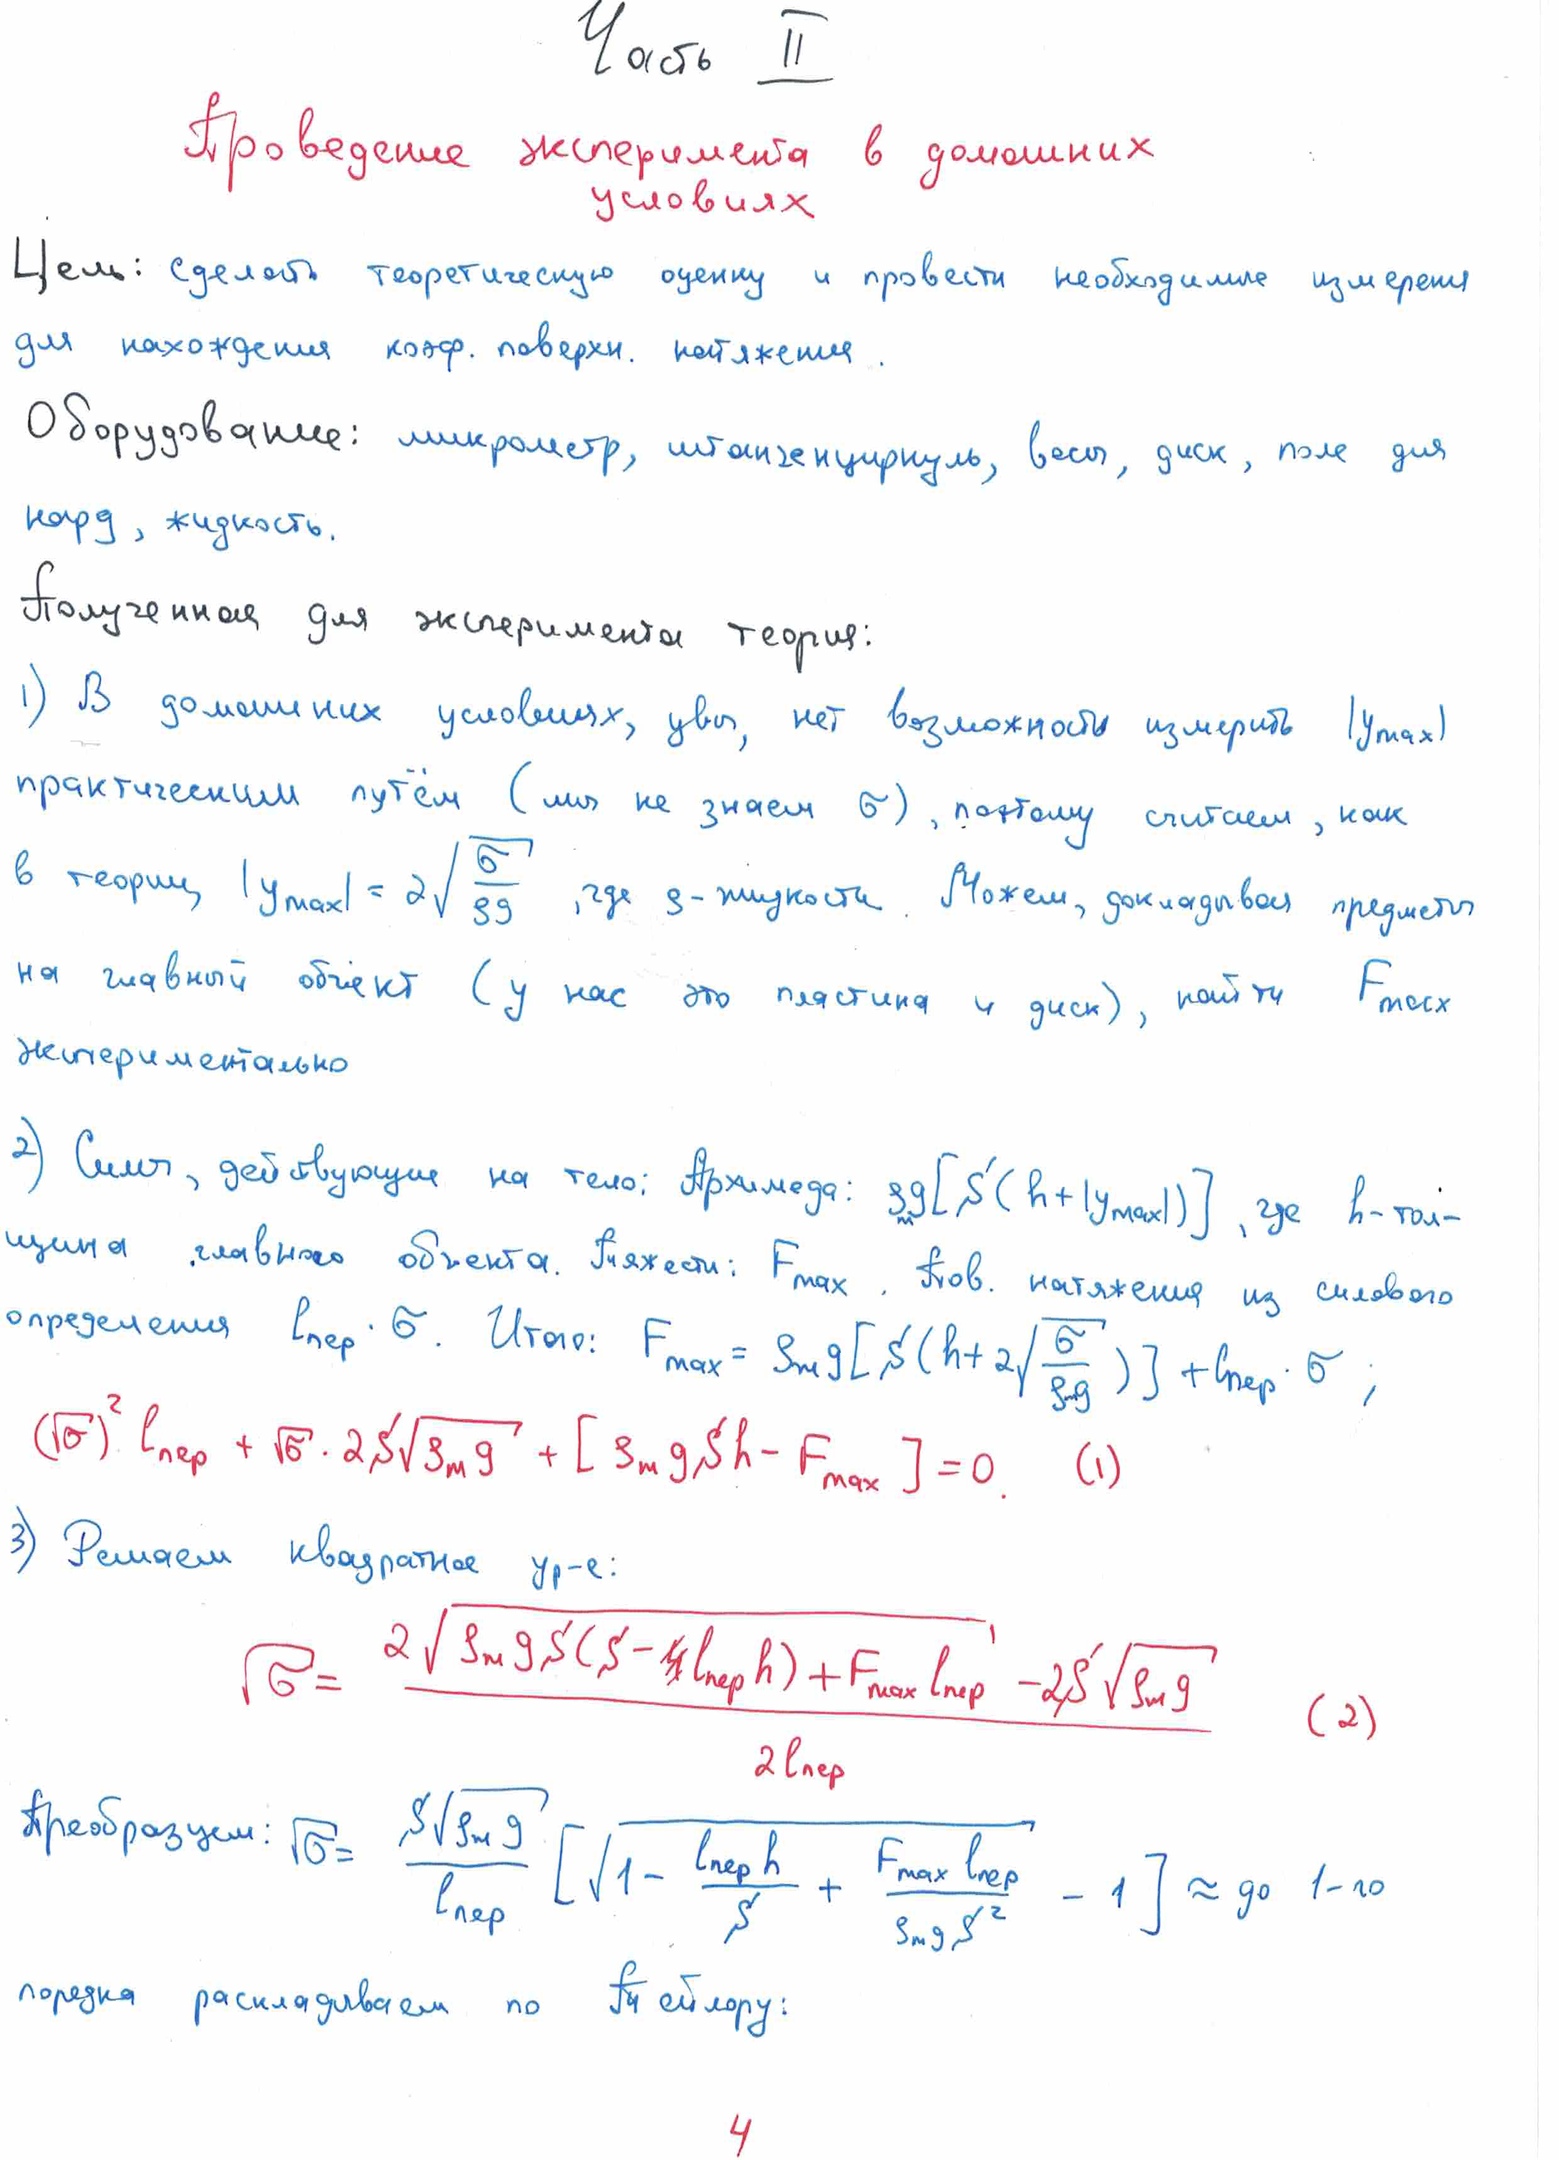 Часть II
Проведение эксперимента в домашних
условиях
Цель: сделать теоретическую оценку и провести необходимые измерения
для нахождения коэф. поверхн. натяжения.
Оборудование: микрометр, штангенциркуль, весы, диск, поле для
нард, жидкость.
Полученная для эксперимента теория:
1) В домашних условиях, увы, нет возможность измерить |y_max|
практическим путём (мы не знаем σ), поэтому считаем, как
в теории, |y_max| = 2√(σ/ρg), где ρ-жидкости. Можем, докладывая предметы
на главный объект (у нас это пластина и диск), найти F_max
экспериментально
2) Силы, действующие на тело: Архимеда: ρ_m g[S(h+|y_max|)], где h-тол-
щина главного объекта. Тяжести: F_max. Пов. натяжения из силового
определения l_пер·σ. Итого: F_max = ρ_m g[S(h+2√(σ/ρ_m g))] + l_пер·σ;
(√σ)² l_пер + √σ·2S√(ρ_m g) + [ρ_m g S h - F_max] = 0. (1)
3) Решаем квадратное ур-е:
√σ = (2√(ρ_m g S(S - l_пер h) + F_max l_пер) - 2S√(ρ_m g)) / (2 l_пер) (2)
Преобразуем: √σ = (S√(ρ_m g) / l_пер) [√(1 - l_пер h/S + F_max l_пер/(ρ_m g S²)) - 1] ≈ до 1-го
порядка раскладываем по Тейлору:
4